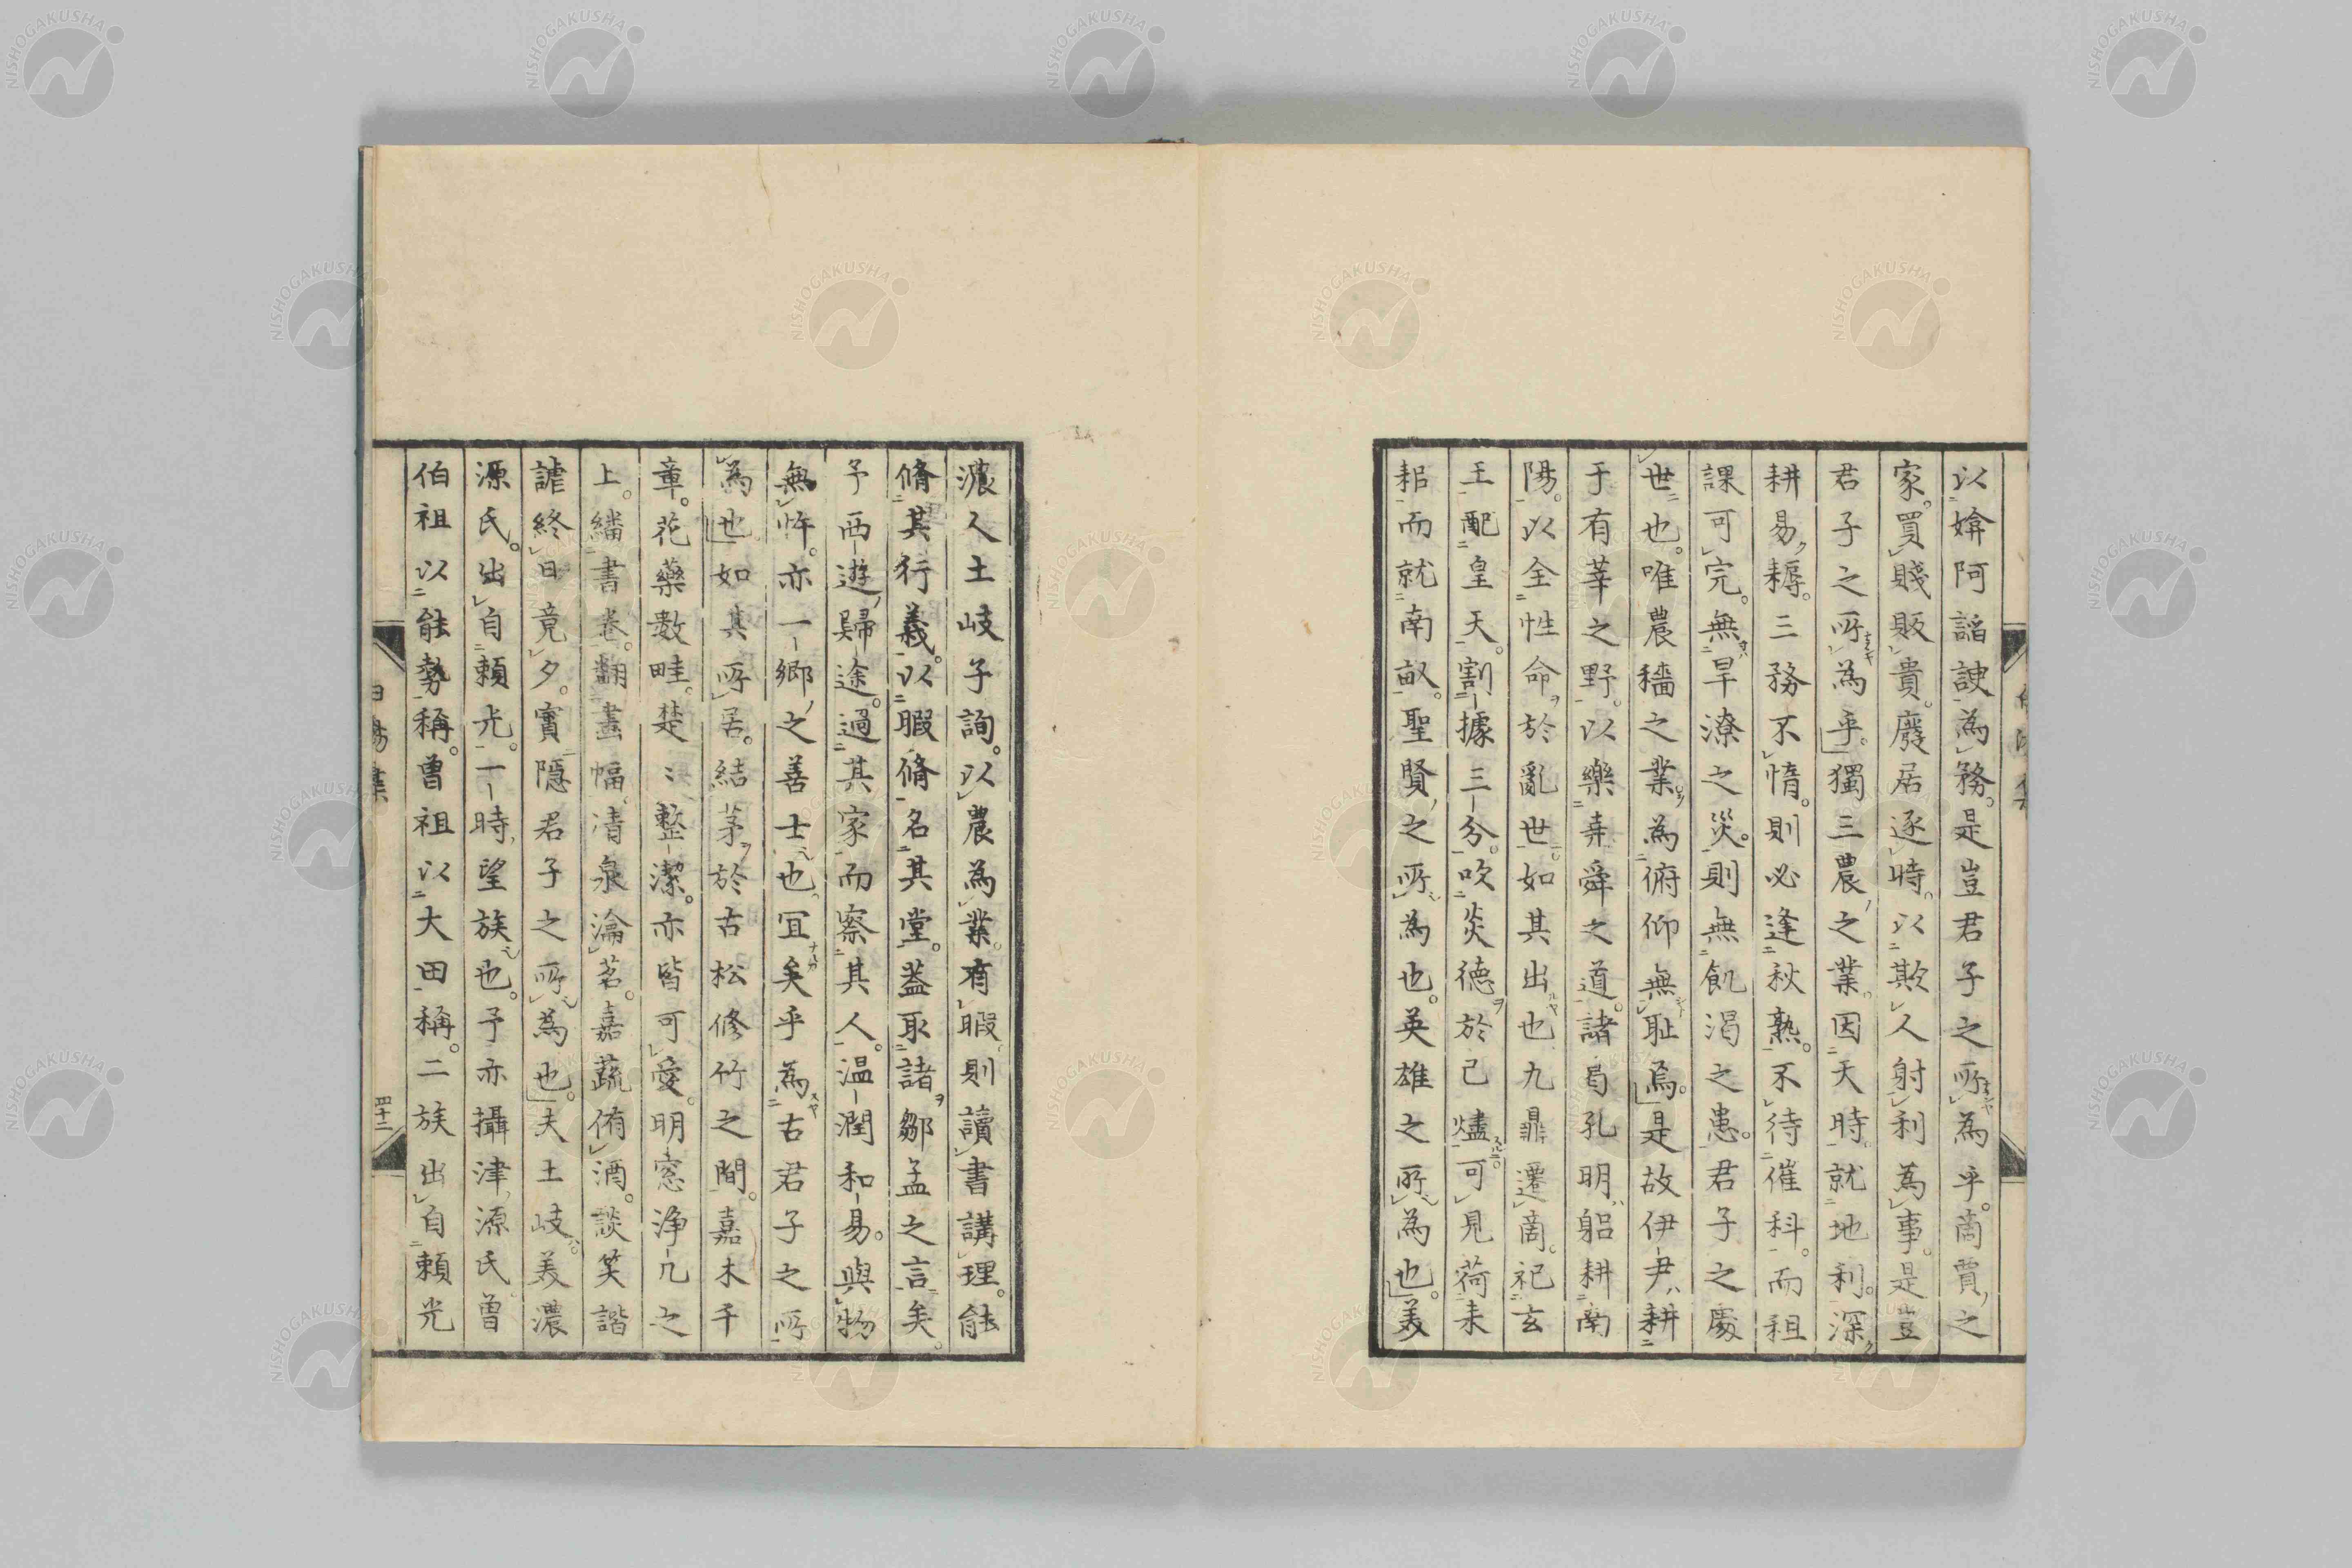 以媕阿謟諛為務。是豈君子之所為乎。啇賈之
家。買賤販貴。廢居逐時。以欺人射利為事。是豈
君子之所為乎。獨三農之業。因天時。就地利。深
耕易耨。三務不惰。則必逢秋熟。不待催科。而租
課可完。無旱潦之災。則無飢渇之患。君子之處
世也。唯農穡之業。為俯仰無耻焉。是故伊尹耕
于有莘之野。以樂堯舜之道。諸曷孔明躬耕南
陽。以全性命於亂世。如其出也九鼎遷啇。祀玄
王配皇天。割據三分。吹炎德於己燼。可見荷耒
耜而就南畝。聖賢之所為也。英雄之所為也。美
濃人土岐子詢。以農為業。有暇則讀書講理。能
脩其行義。以暇脩名其堂。蓋取諸鄒孟之言矣。
予西遊歸途。過其家而察其人。温潤和易。與物
無忤。亦一鄉之善士也。冝矣乎為古君子之所
為也。如其所居。結茅於古松修竹之間。嘉木千
章。花藥數畦。楚〻整潔。亦皆可愛。明窓浄几之
上。繙書卷。翻畫幅。清泉瀹茗。嘉蔬侑酒。談笑諧
謔終日竟夕。實隠君子之所為也。夫土岐美濃
源氏。出自賴光。一時望族也。予亦攝津源氏曽
伯祖以能勢稱。曽祖以大田稱。二族出自賴光
四十二
NISHOGAKUSHA